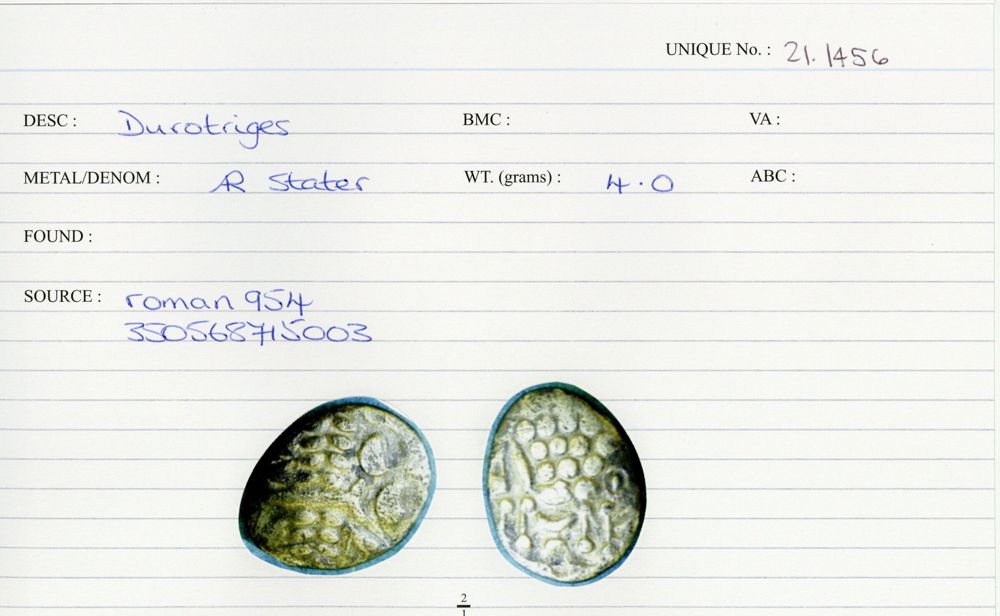 UNIQUE No. : 21.1456
DESC : Durotriges BMC : VA :
METAL/DENOM : AR Stater WT. (grams) : 4.0 ABC :
FOUND :
SOURCE : roman954
350568715003
2
1